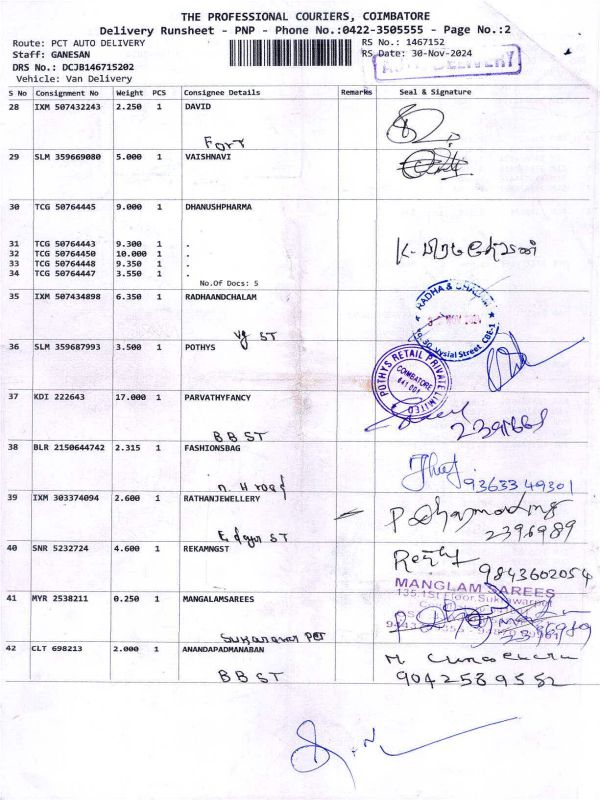 THE PROFESSIONAL COURIERS, COIMBATORE
Delivery Runsheet - PNP - Phone No.:0422-3505555 - Page No.:2
Route: PCT AUTO DELIVERY RS No.: 1467152
Staff: GANESAN RS Date: 30-Nov-2024
DRS No.: DCJB146715202 AUTO DELIVERY
Vehicle: Van Delivery
S No Consignment No Weight PCS Consignee Details Remarks Seal & Signature
28 IXM 507432243 2.250 1 DAVID
Fort
29 SLM 359669080 5.000 1 VAISHNAVI
30 TCG 50764445 9.000 1 DHANUSHPHARMA
31 TCG 50764443 9.300 1 .
32 TCG 50764450 10.000 1 .
33 TCG 50764448 9.350 1 .
34 TCG 50764447 3.550 1 .
No.Of Docs: 5
35 IXM 507434898 6.350 1 RADHAANDCHALAM
RADHA &
Vysial Street CBE-1
Vg ST
36 SLM 359687993 3.500 1 POTHYS
POTHYS RETAIL PRIVATE LIMITED
COIMBATORE
641 001
37 KDI 222643 17.000 1 PARVATHYFANCY
BB ST
38 BLR 2150644742 2.315 1 FASHIONSBAG
9363349301
n H road
39 IXM 303374094 2.600 1 RATHANJEWELLERY
2396989
ST
40 SNR 5232724 4.600 1 REKAMNGST
9843602054
MANGLAM SAREES
135, 1st Floor, Sukrawarpet
41 MYR 2538211 0.250 1 MANGALAMSAREES
42 CLT 698213 2.000 1 ANANDAPADMANABAN
BB ST